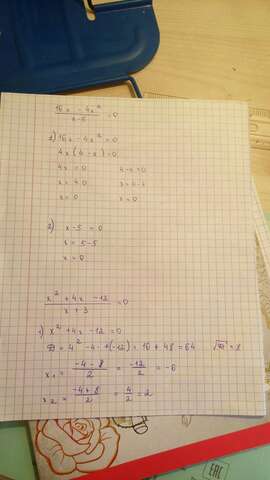 (16x - 4x²)/(x-5) = 0
1) 16x - 4x² = 0
4x (4-x) = 0
4x = 0    4-x=0
x = 4·0    x=4-4
x = 0    x=0
2) x-5 = 0
x = 5-5
x = 0
(x² + 4x - 12)/(x + 3) = 0
1) x² + 4x - 12 = 0
D = 4² - 4 · 1·(-12) = 16 + 48 = 64    √D = 8
x₁ = (-4 - 8)/2 = -12/2 = -6
x₂ = (-4 + 8)/2 = 4/2 = 2
EAC